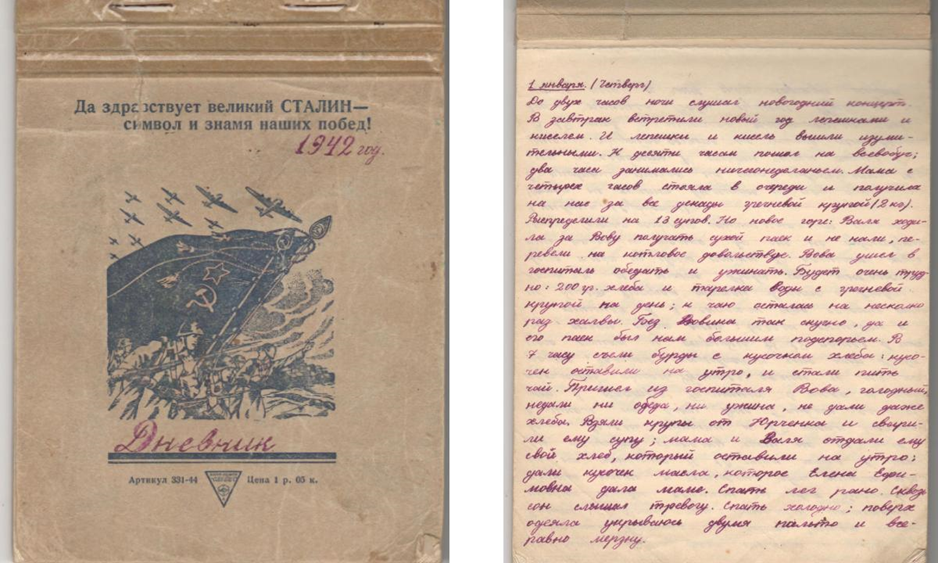 Да здравствует великий СТАЛИН—
символ и знамя наших побед!
1942 год.
Дневник
Артикул 331-44 Цена 1 р. 65 к.
1 января. (Четверг)
До двух часов ночи слушал новогодний концерт.
В завтрак встретили новый год лепешками и
киселем. И лепешки и кисель вышли изуми-
тельными. К десяти часам пошел на всевобуч;
два часа занимались ничегонеделаньем. Мама с
четырех часов стояла в очереди и получила
на нас за все декады гречневой крупой (2 кг).
Распределили на 13 супов. Но новое горе: Валя ходи-
ла за Вову получать сухой паек и не дали, пе-
ревели на котловое довольствие. Вова ушел в
госпиталь обедать и ужинать. Будет очень труд-
но: 200 гр. хлеба и тарелка воды с гречневой
крупой на день; к чаю осталась на несколько
раз халвы. Без Вовина так скучно, да и
его паек был нам большим подспорьем. В
7 часу съели бурды с кусочком хлеба: кусо-
чек оставили на утро, и стали пить
чай. Пришел из госпиталя Вова, голодный,
недали ни обеда, ни ужина, не дали даже
хлеба. Взяли крупы от Юрченки и свари-
ли ему супу; мама и Валя отдали ему
свой хлеб, который оставили на утро;
дали кусочек масла, которое Елена Ефи-
мовна дала маме. Спать лег рано. Сквозь
сон слышал тревогу. Спать холодно; поверх
одеяла укрываюсь двумя пальто и все-
равно мерзну.